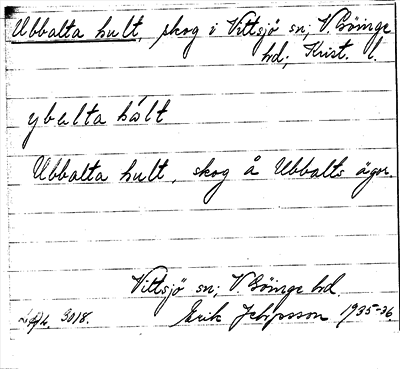 Ubbalta hult, skog i Vittsjö sn; V. Göinge
hd; Krist. l.
ybalta hált
Ubbalta hult, skog å Ubbalts ägor.
Vittsjö sn; V. Göinge hd.
3018. Erik Jeppsson 1935-36.